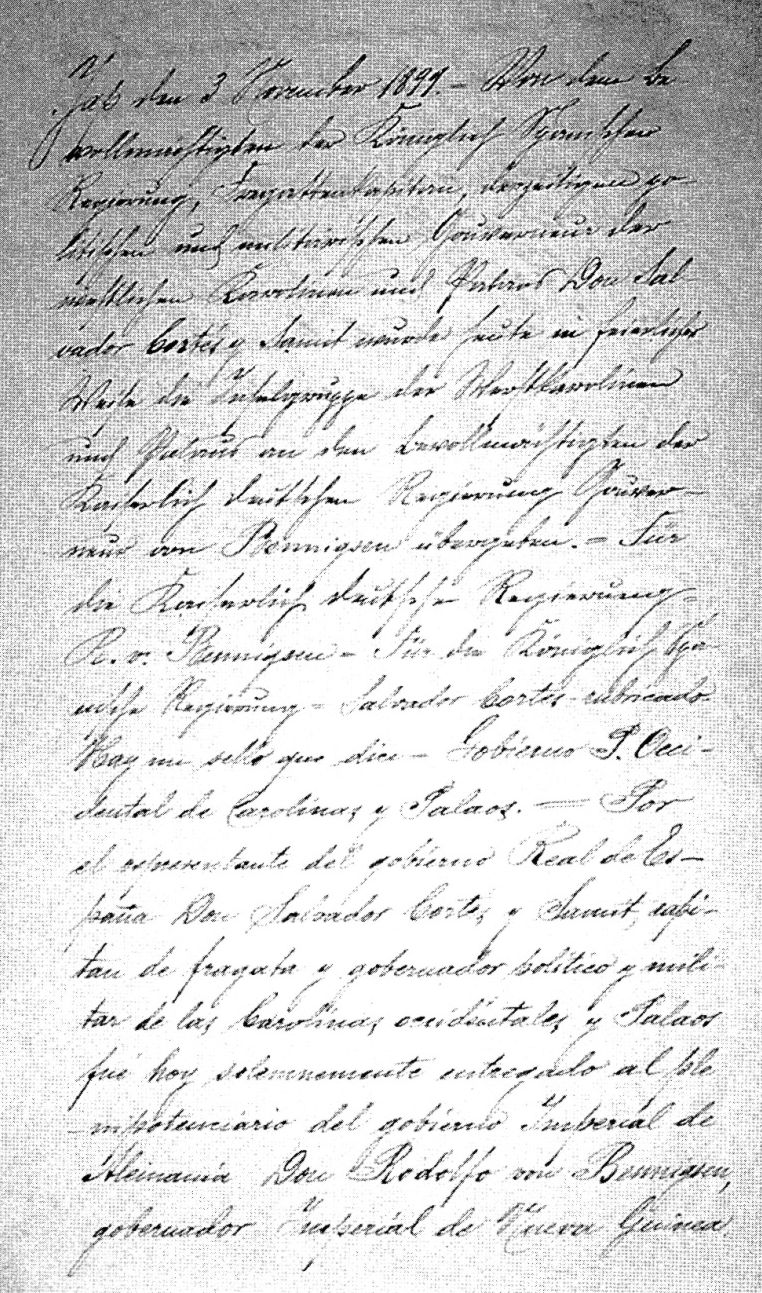 Jab den 3 November 1899. – Von dem be
vollmächtigten der Königlich Spanischen
Regierung, Fregattenkapitän, derzeitigen po-
litischen und militärischen Gouverneur der
westlichen Karolinen und Palaos Don Sal-
vador Cortés y Samit wurde heute in feierlicher
Weise die Inselgruppe der Westkarolinen
und Palaus an den bevollmächtigten der
Kaiserlich deutschen Regierung Gouver-
neur von Bennigsen übergeben. = Für
die Kaiserlich deutsche Regierung =
R. v. Bennigsen = Für die Königlich Spa
nische Regierung = Salvador Cortés = rubricado.
Hay un sello que dice – Gobierno P. Occi-
dental de Carolinas y Palaos. — Por
el representante del gobierno Real de Es-
paña Don Salvador Cortés y Samit, capi-
tan de fragata y gobernador politico y mili-
tar de las Carolinas occidentales y Palaos
fué hoy solemnemente entregado al ple
-nipotenciario del gobierno Imperial de
Alemania Don Rodolfo von Bennigsen,
gobernador Imperial de Nueva Guinea.